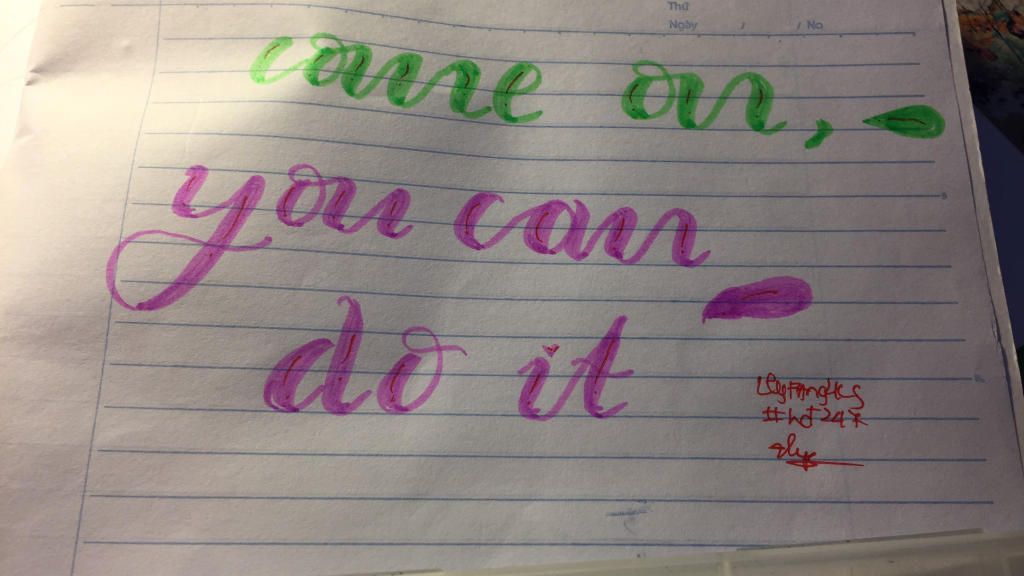 Thứ
Ngày / / No
come on,
you can
do it